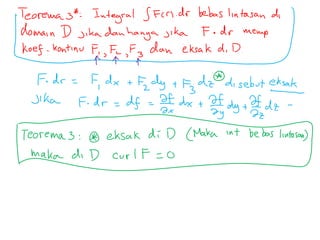 Teorema 3*: Integral ∫F(r).dr bebas lintasan di
domain D jika dan hanya jika F.dr memp
koef. kontinu F₁, F₂, F₃ dan eksak di D
F.dr = F₁dx + F₂dy + F₃dz ⊛ disebut eksak
jika F.dr = df = ∂f/∂x dx + ∂f/∂y dy + ∂f/∂z dz -
Teorema 3: ⊛ eksak di D (Maka int bebas lintasan)
maka di D curl F = 0